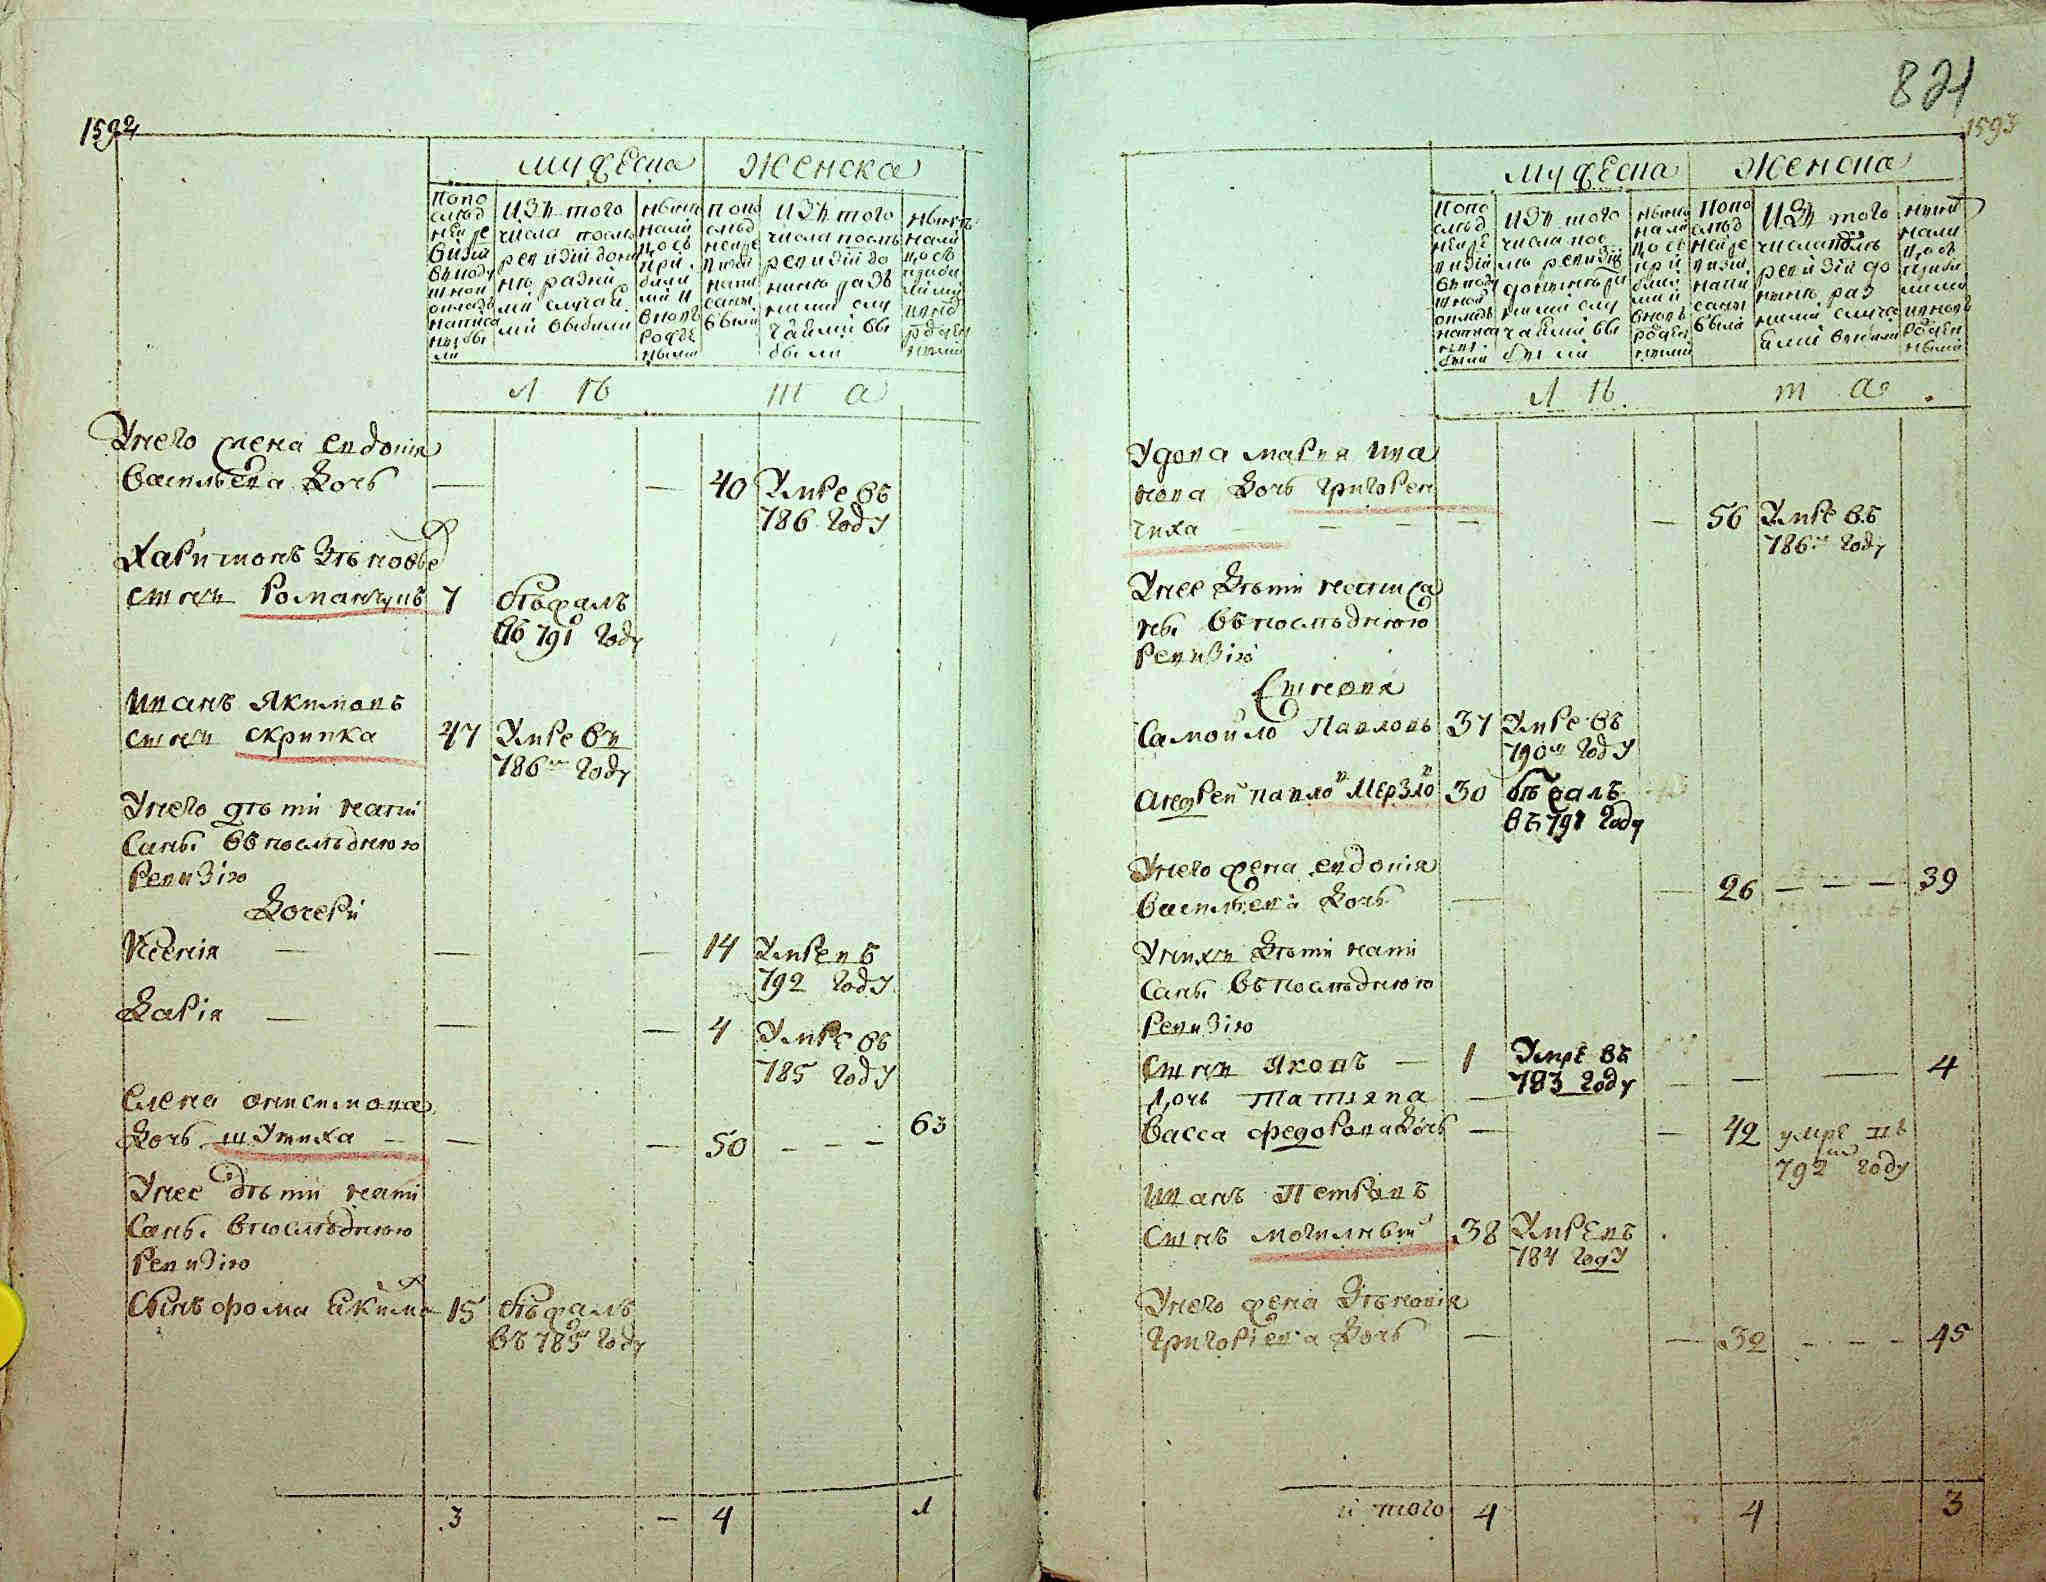 1592
Мужеска Женска
По по
след
ней ре
визии
в подуш
ной
окладъ
написа
ны бы
ли
Изъ того
числа послѣ
ревизіи до ны
нѣ разны
ми случаи
ми выбыли
ныне
нали
цо съ
при
были
ми и
вновь
рожде
ными
По по
след
ней ре
визіи
напи
саны
были
Изъ того
числа послѣ
ревизіи до
нынѣ раз
ными слу
чайми вы
были
нынѣ
нали
цо съ
прибы
лыми
и внов
рожден
ными
Л ѣ т а
У него жена Евдокія
Васильева дочь — — 40 Умре въ
786 году
Харитонъ Зѣновьевъ
сынъ Романчукъ 7 бѣжалъ
въ 791 году
Иванъ Якимовъ
сынъ скрипка 47 Умре въ
786м году
У него дѣти напи
саны въ последнюю
Ревизію
Дочери
Ксенія — — — 14 Умре въ
792 году
Дарія — — — 4 Умре въ
785 году
Елена Онисимова
дочь шутиха — — — 50 - - - 63
У нее дѣти напи
саны в последнюю
Ревизію
Сынъ фома Якимов 15 бѣжалъ
въ 785м году
3 — 4 1
821
1593
Мужеска Женска
По по
след
ней ре
визіи
в поду
шной
окладъ
написа
ны
были
Изъ того
числа пос
лѣ ревизіи
до нынѣ раз
ными слу
чайми вы
были
ныне
нали
цо съ
при
былы
ми и
вновь
рожден
ными
По по
след
ней ре
визіи
напи
саны
были
Изъ того
числа послѣ
ревизіи до
нынѣ раз
ными случа
ями выбыли
нынѣ
нали
цо съ
прибы
лыми
и вновь
рожден
ными
Л ѣ т а
Удова Марья Ива
нова дочь Григорен
чиха — — — — — 56 Умре въ
786м году
У нее дѣти написа
ны въ последнюю
Ревизію
Сыновья
Самойло Павловъ 37 Умре въ
790м году
Андрей Павлов Мерзлов 30 бѣжалъ
въ 791 году
У него жена Евдокія
Васильева дочь — — 26 — — — 39
У них дѣти напи
саны въ последнюю
Ревизію
Сынъ Яковъ — 1 Умре въ
783 году
Дочь Татіяна — — — — 4
Васса Федорова дочь — — 42 умре въ
792м году
Иванъ Петровъ
Сынъ могильный 38 Умре въ
784 году
У него жена Зѣновія
Григорьева дочь — — 32 - - - 45
итого 4 4 3